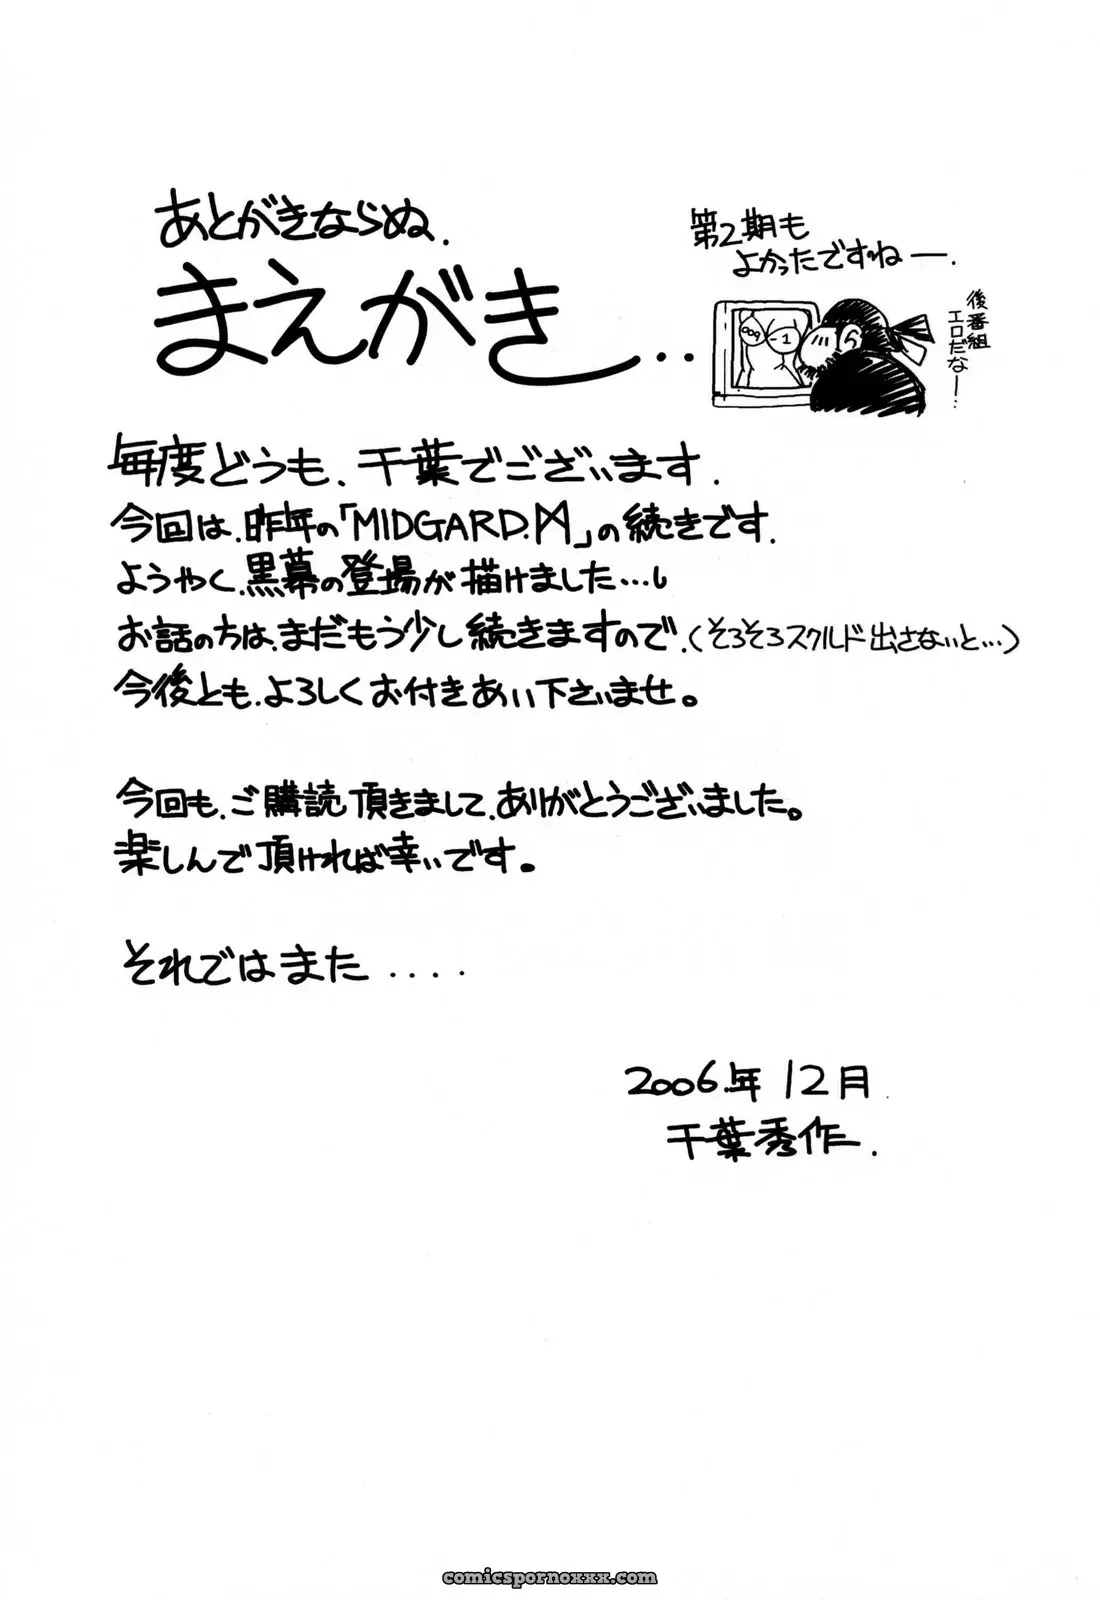 あとがきならぬ、
まえがき‥
第2期も
よかったですねー.
後番組
エロだなー‥
009
-1
毎度どうも、千葉でございます.
今回は、昨年の「MIDGARD.M」の続きです.
ようやく、黒幕の登場が描けました…し
お話の方は、まだもう少し続きますので、(そろそろスクルド出さないと…)
今後とも、よろしくお付きあい下さいませ。
今回も、ご購読頂きまして、ありがとうございました。
楽しんで頂ければ幸いです。
それではまた‥‥
2006年12月
千葉秀作.
comicspornoxxx.com